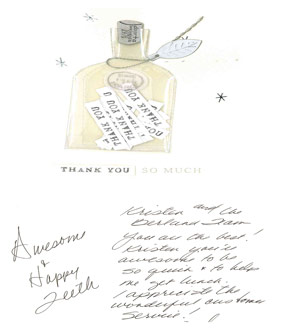 THANK YOU
THANK YOU
THANK YOU
THANK YOU | SO MUCH
Awesome
+
Happy
Teeth
Kristen and the
Team
You are the best!
Kristen you're
awesome to be
so quick + to help
me get lunch.
I appreciate the
wonderful customer
Service!